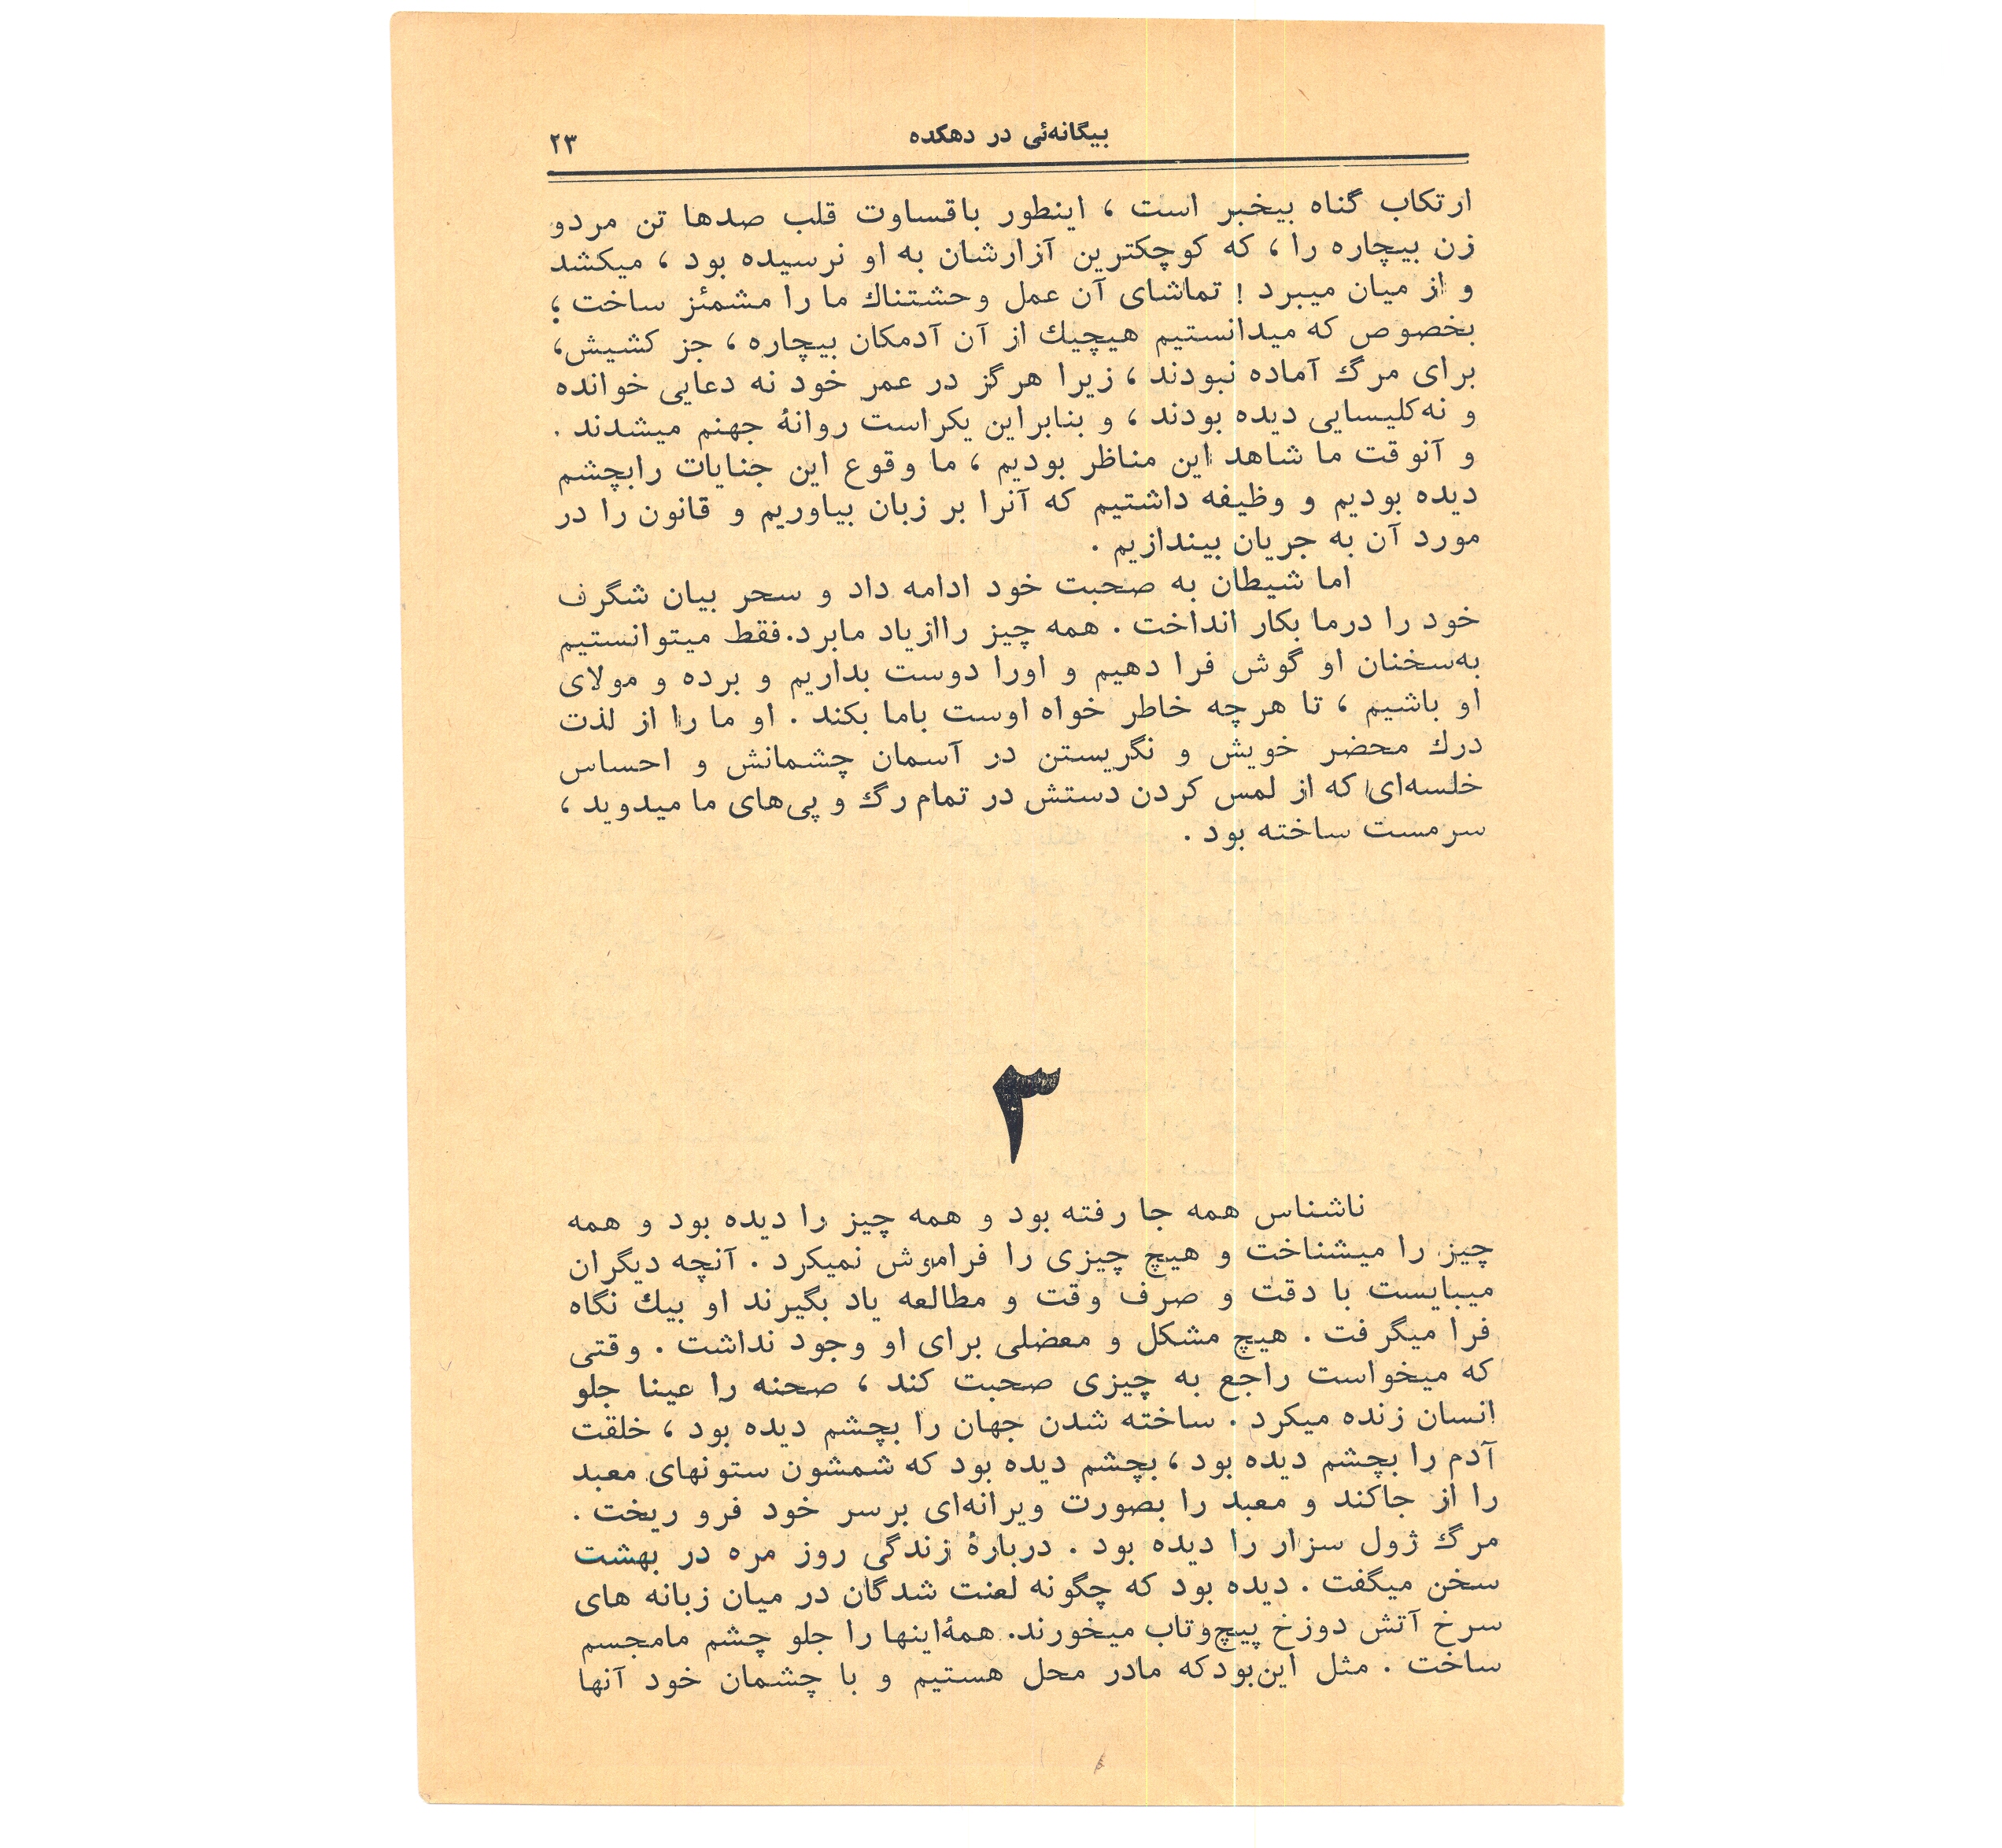 بیگانه‌ئی در دهکده
۲۳
ارتکاب گناه بیخبر است ، اینطور باقساوت قلب صدها تن مردو
زن بیچاره را ، که کوچکترین آزارشان به او نرسیده بود ، میکشد
و از میان میبرد ! تماشای آن عمل وحشتناك ما را مشمئز ساخت ؛
بخصوص که میدانستیم هیچیك از آن آدمکان بیچاره ، جز کشیش،
برای مرگ آماده نبودند ، زیرا هرگز در عمر خود نه دعایی خوانده
و نه‌کلیسایی دیده بودند ، و بنابراین یکراست روانهٔ جهنم میشدند .
و آنوقت ما شاهد این مناظر بودیم ، ما وقوع این جنایات رابچشم
دیده بودیم و وظیفه داشتیم که آنرا بر زبان بیاوریم و قانون را در
مورد آن به جریان بیندازیم .
اما شیطان به صحبت خود ادامه داد و سحر بیان شگرف
خود را درما بکار انداخت . همه چیز راازیاد مابرد.فقط میتوانستیم
به‌سخنان او گوش فرا دهیم و اورا دوست بداریم و برده و مولای
او باشیم ، تا هرچه خاطر خواه اوست باما بکند . او ما را از لذت
درك محضر خویش و نگریستن در آسمان چشمانش و احساس
خلسه‌ای که از لمس کردن دستش در تمام رگ و پی‌های ما میدوید ،
سرمست ساخته بود .
۳
ناشناس همه جا رفته بود و همه چیز را دیده بود و همه
چیز را میشناخت و هیچ چیزی را فراموش نمیکرد . آنچه دیگران
میبایست با دقت و صرف وقت و مطالعه یاد بگیرند او بیك نگاه
فرا میگرفت . هیچ مشکل و معضلی برای او وجود نداشت . وقتی
که میخواست راجع به چیزی صحبت کند ، صحنه را عینا جلو
انسان زنده میکرد . ساخته شدن جهان را بچشم دیده بود ، خلقت
آدم را بچشم دیده بود ، بچشم دیده بود که شمشون ستونهای معبد
را از جاکند و معبد را بصورت ویرانه‌ای برسر خود فرو ریخت .
مرگ ژول سزار را دیده بود . دربارهٔ زندگی روز مره در بهشت
سخن میگفت . دیده بود که چگونه لعنت شدگان در میان زبانه های
سرخ آتش دوزخ پیچ‌وتاب میخورند. همهٔ‌اینها را جلو چشم مامجسم
ساخت . مثل این‌بودکه مادر محل هستیم و با چشمان خود آنها